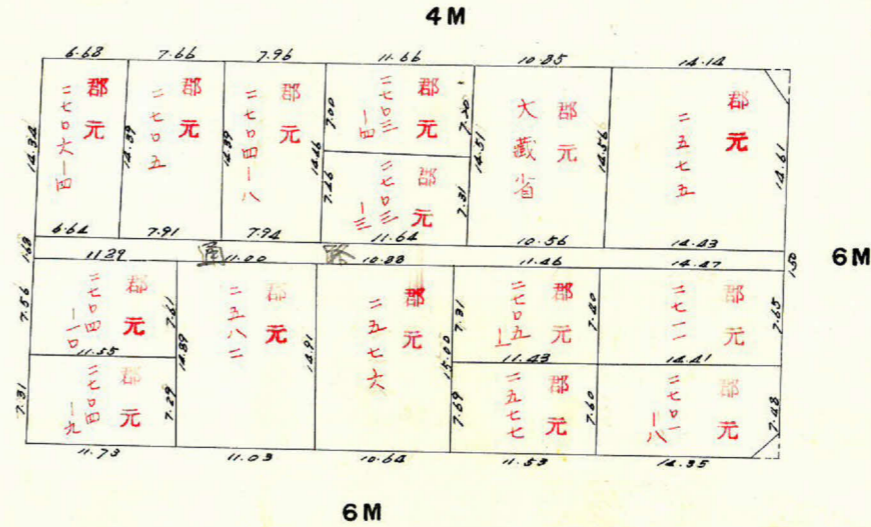 4M
6.68 7.66 7.96 11.66 10.85 14.14
郡元 二七〇六-四
郡元 二七〇五
郡元 二七〇四-八
郡元 二七〇三-四
郡元 二七〇三-三
郡元 大蔵省
郡元 二五七五
14.34 14.39 14.39 14.46 7.00 7.46 7.20 7.31 14.51 14.56 14.61
6.64 7.91 7.94 11.64 10.56 14.43
1.68 通路 1.50
6M
11.29 11.00 10.88 11.46 14.47
郡元 二七〇四-一〇
郡元 二七〇四-九
郡元 二五八二
郡元 二五七六
郡元 二七〇五-一
郡元 二五七七
郡元 二七一一
郡元 二七〇一-八
7.56 7.61 14.89 14.91 15.00 7.31 7.40 7.65
11.55 11.43 14.41
7.31 7.29 7.69 7.60 7.48
11.73 11.03 10.64 11.53 14.35
6M